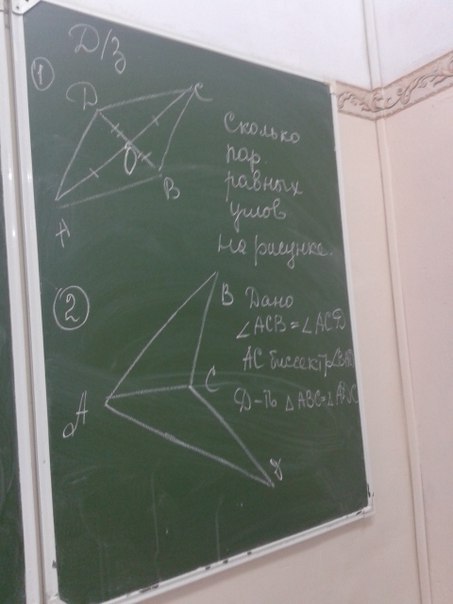 Д/З
1
D
C
O
B
A
Сколько
пар
равных
углов
на рисунке.
2
B
Дано
∠ACB=∠ACD
AC биссектр
A
C
Д-ть △ABC=∠ADC